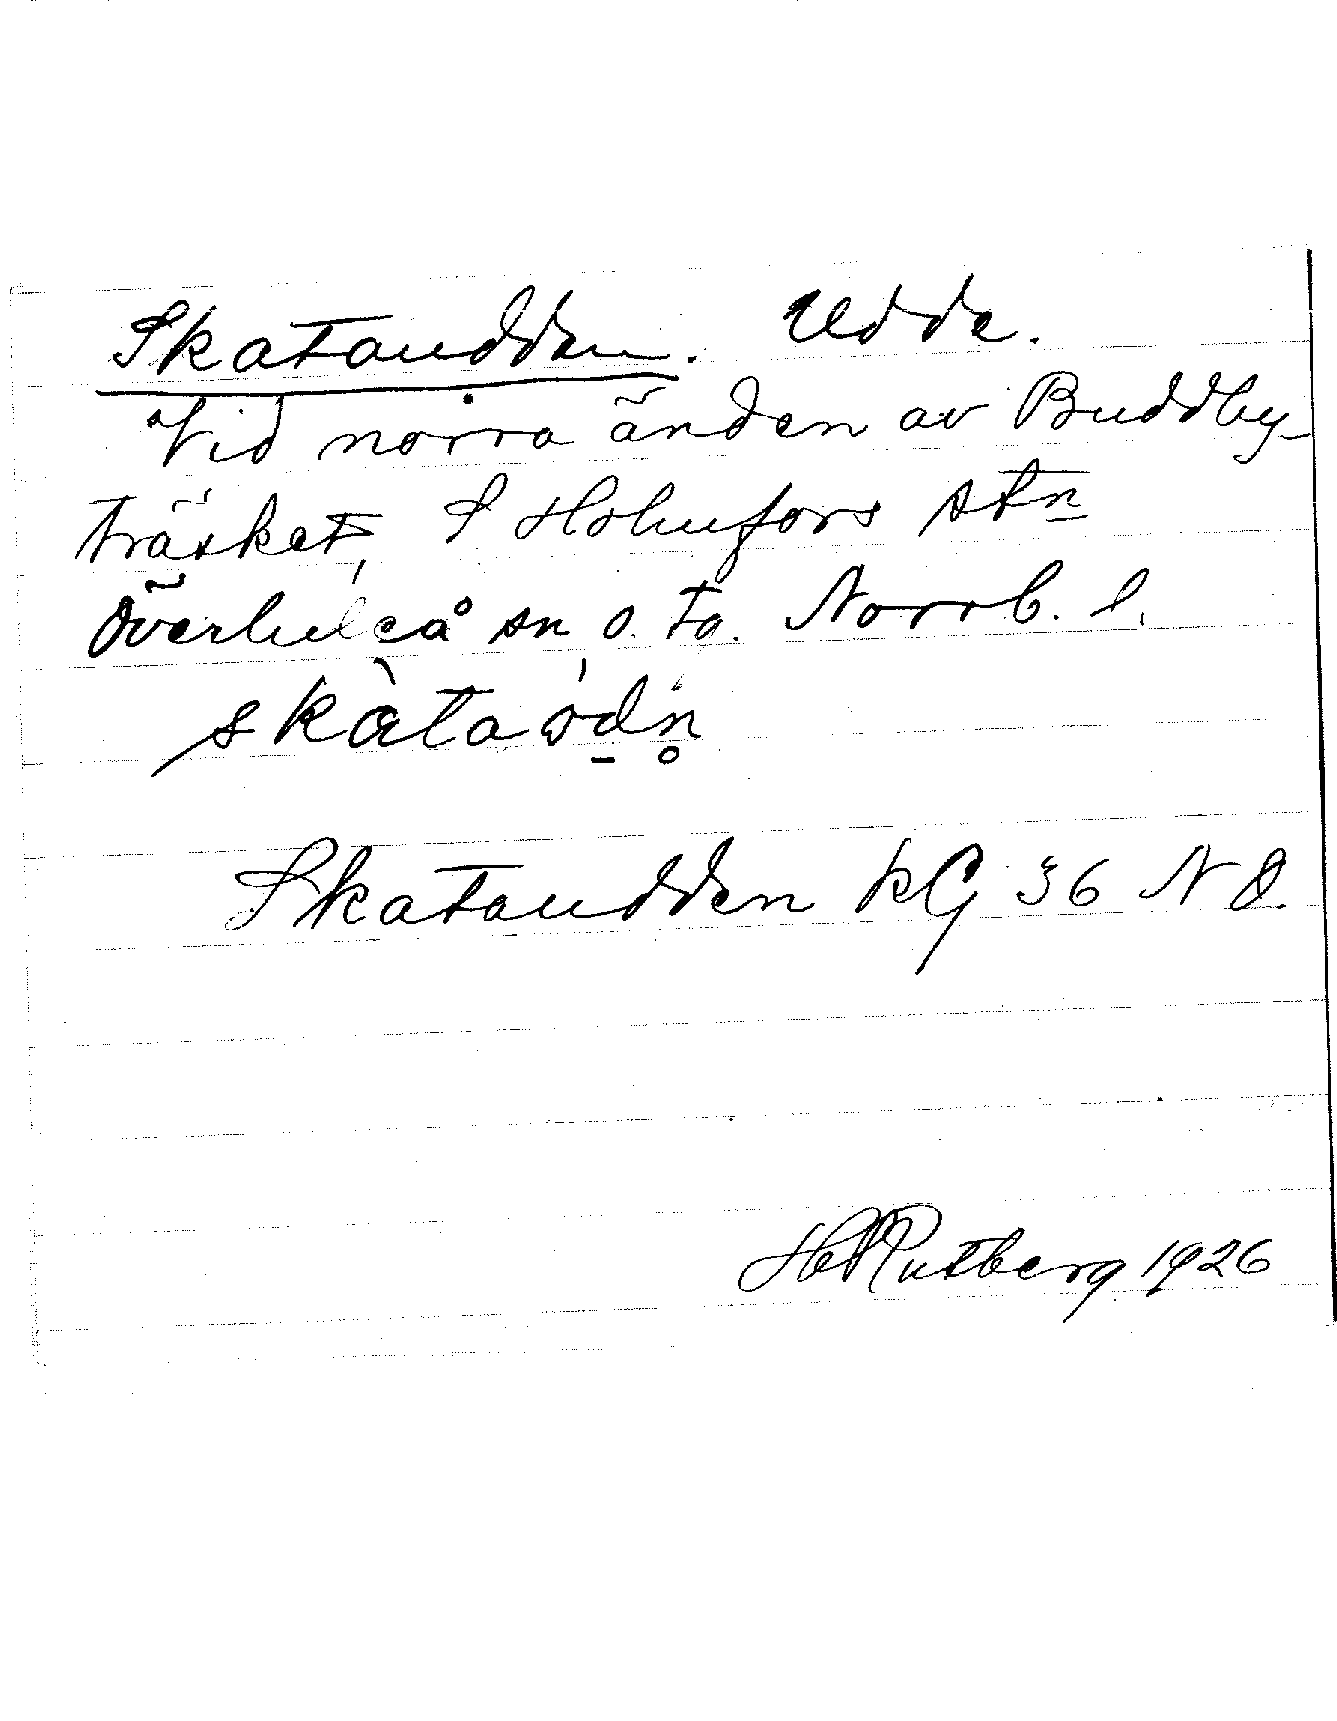 Skataudden. Udde.
Vid norra änden av Buddby-
träsket, S Holmfors stn
Överluleå sn o. tg. Norrb. l.
skàtaòdn̥
Skataudden kG 36 NO.
H Rutberg 1926